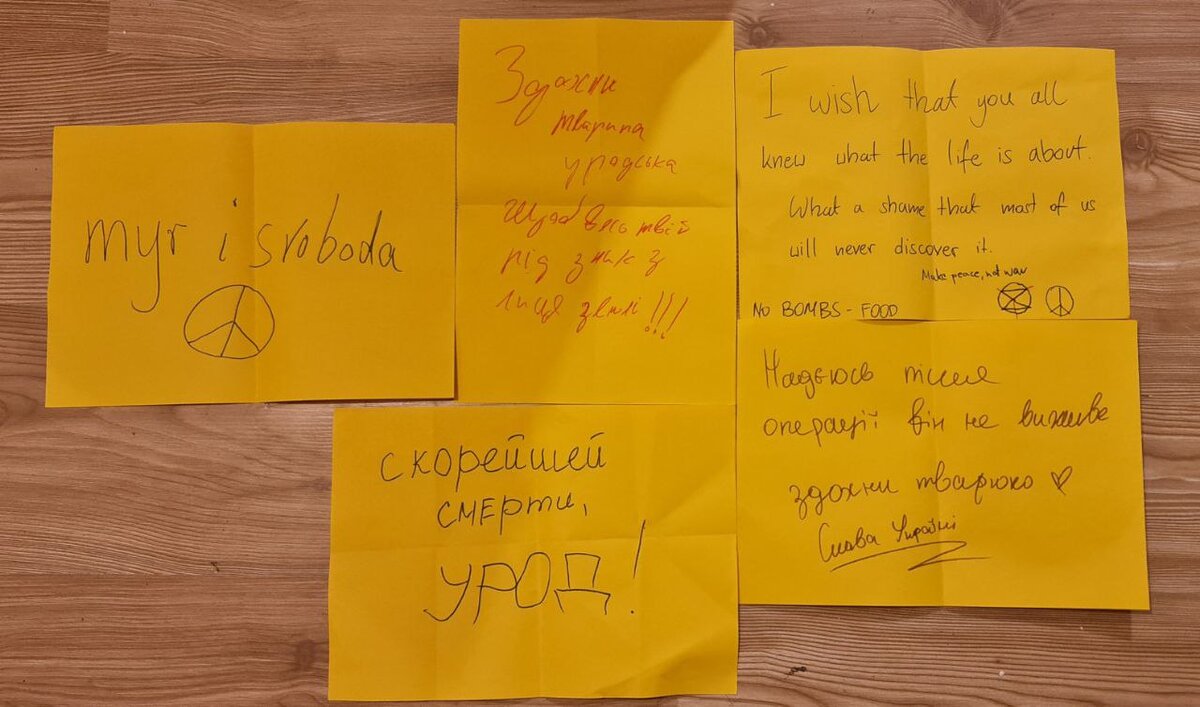 myr i svoboda
Здохни
тварина
уродська
Щоб весь твій
рід зник з
лиця землі!!!
I wish that you all
knew what the life is about.
What a shame that most of us
will never discover it.
Make peace, not war
NO BOMBS - FOOD
скорейшей
смерти,
УРОД!
Надеюсь
операції він не виживе
здохни тварюко ♡
Слава Україні